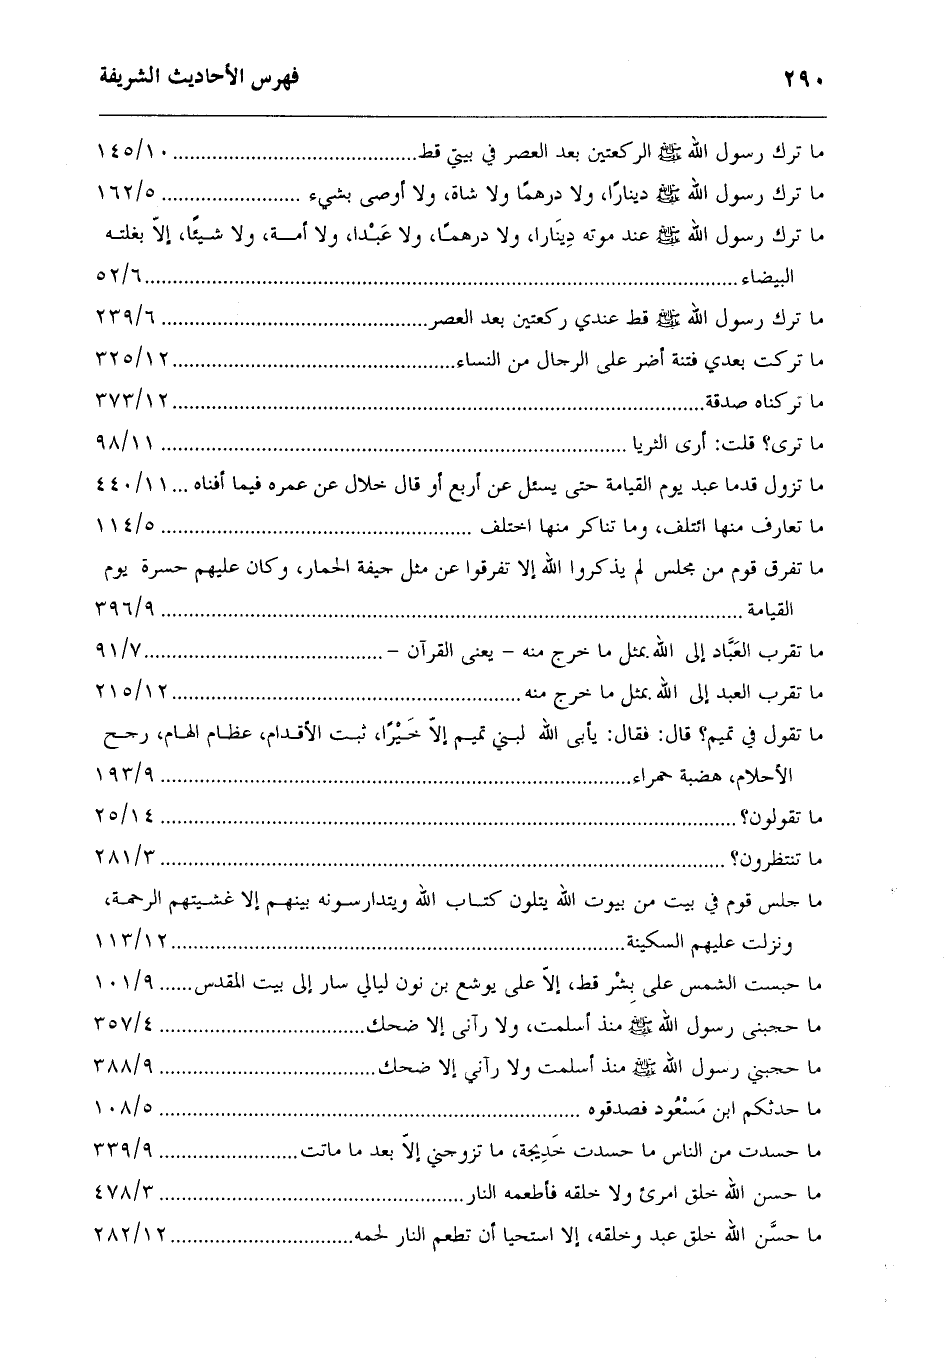 ٢٩٠ فهرس الأحاديث الشريفة
ما ترك رسول الله ﷺ الركعتين بعد العصر في بيتي قط........................................... ١٤٥/١٠
ما ترك رسول الله ﷺ دينارًا، ولا درهمًا ولا شاة، ولا أوصى بشيء ......................... ١٦٢/٥
ما ترك رسول الله ﷺ عند موته دِينَارا، ولا درهمـًا، ولا عَبْدا، ولا أمـــة، ولا شيئًا، إلاّ بغلتـه
البيضاء......................................................................................................... ٥٢/٦
ما ترك رسول الله ﷺ قط عندي ركعتين بعد العصر............................................... ٢٣٩/٦
ما تركت بعدي فتنة أضر على الرحال من النساء.................................................. ٣٢٥/١٢
ما تركناه صدقة.............................................................................................. ٣٧٣/١٢
ما ترى؟ قلت: أرى الثريا ................................................................................... ٩٨/١١
ما تزول قدما عبد يوم القيامة حتى يسئل عن أربع أو قال خلال عن عمره فيما أفناه ... ٤٤٠/١١
ما تعارف منها ائتلف، وما تناكر منها اختلف ....................................................... ١١٤/٥
ما تفرق قوم من مجلس لم يذكروا الله إلا تفرقوا عن مثل حيفة الحمار، وكان عليهم حسرة يوم
القيامة ........................................................................................................ ٣٩٦/٩
ما تقرب العَبَّاد إلى الله بمثل ما خرج منه – يعنى القرآن –.......................................... ٩١/٧
ما تقرب العبد إلى الله بمثل ما خرج منه............................................................... ٢١٥/١٢
ما تقول في تميم؟ قال: فقال: يأبى الله لبـني تميـم إلاّ خَـيْرًا، ثبـت الأقـدام، عظـام الهـام، رجـح
الأحلام، هضبة حمراء..................................................................................... ١٩٣/٩
ما تقولون؟ ..................................................................................................... ٢٥/١٤
ما تنتظرون؟ .................................................................................................... ٢٨١/٣
ما جلس قوم في بيت من بيوت الله يتلون كتـاب الله ويتدارسـونه بينهـم إلا غشـيتهم الرحمـة،
ونزلت عليهم السكينة................................................................................... ١١٣/١٢
ما حبست الشمس على بِشْر قط، إلاّ على يوشع بن نون ليالي سار إلى بيت المقدس...... ١٠١/٩
ما حجبنى رسول الله ﷺ منذ أسلمت، ولا رآنى إلا ضحك..................................... ٣٥٧/٤
ما حجبني رسول الله ﷺ منذ أسلمت ولا رآني إلا ضحك...................................... ٣٨٨/٩
ما حدثكم ابن مَسْعُود فصدقوه .......................................................................... ١٠٨/٥
ما حسدت من الناس ما حسدت خَدِيجة، ما تزوجني إلاّ بعد ما ماتت......................... ٣٣٩/٩
ما حسن الله خلق امرئ ولا خلقه فأطعمه النار...................................................... ٤٧٨/٣
ما حسَّن الله خلق عبد وخلقه، إلا استحيا أن تطعم النار لحمه................................. ٢٨٢/١٢